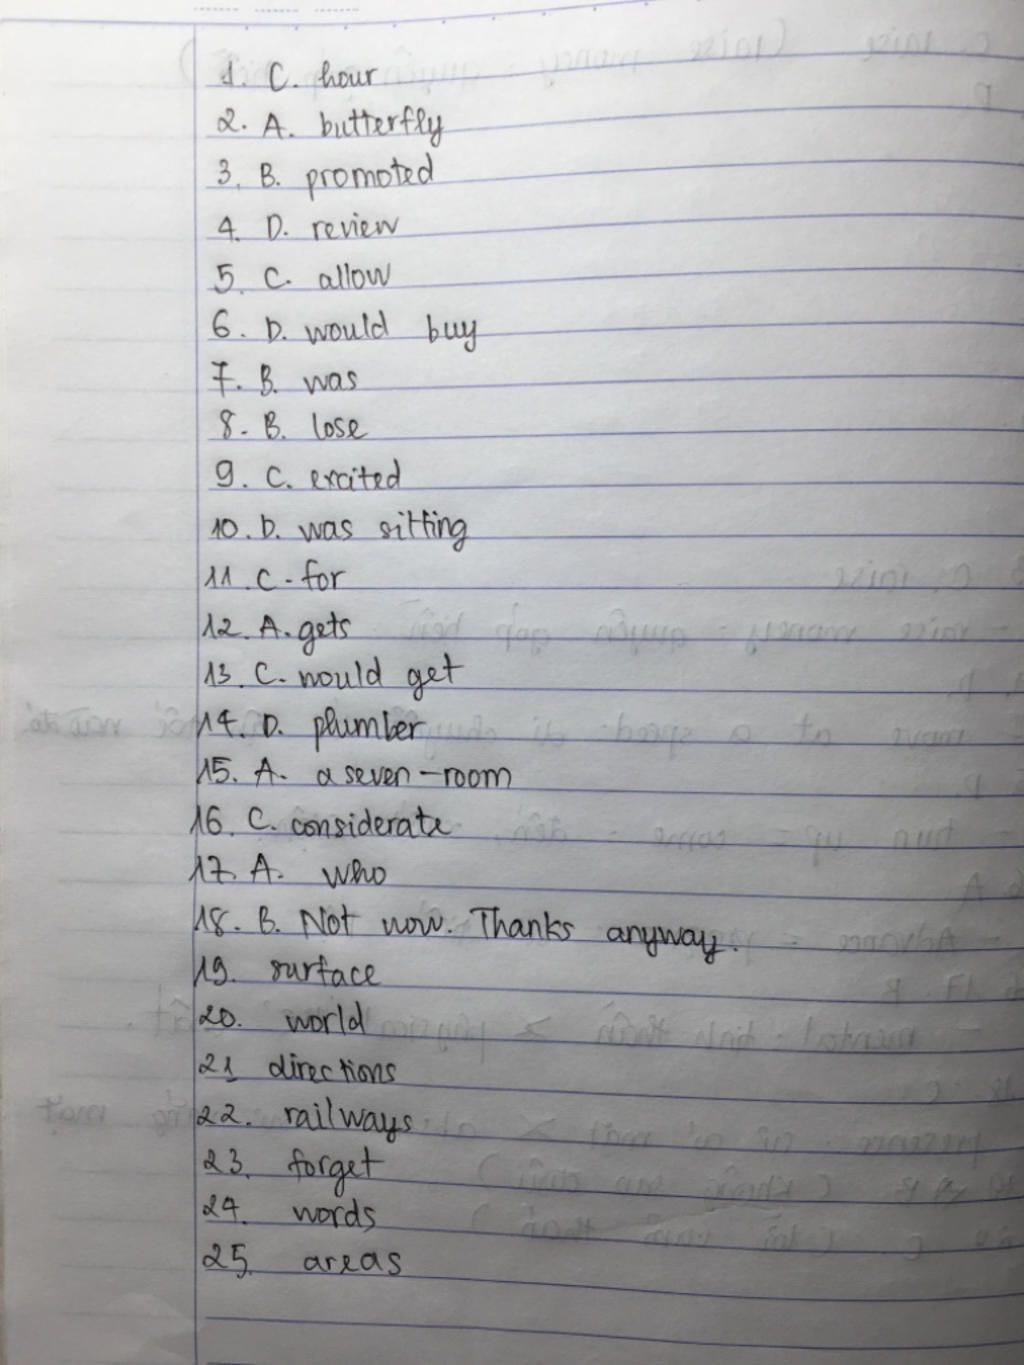 1. C. hour
2. A. butterfly
3. B. promoted
4. D. review
5. C. allow
6. D. would buy
7. B. was
8. B. lose
9. C. excited
10. D. was sitting
11. C - for
12. A. gets
13. C. would get
14. D. plumber
15. A. a seven-room
16. C. considerate
17. A. who
18. B. Not now. Thanks anyway.
19. surface
20. world
21 directions
22. railways
23. forget
24. words
25. areas